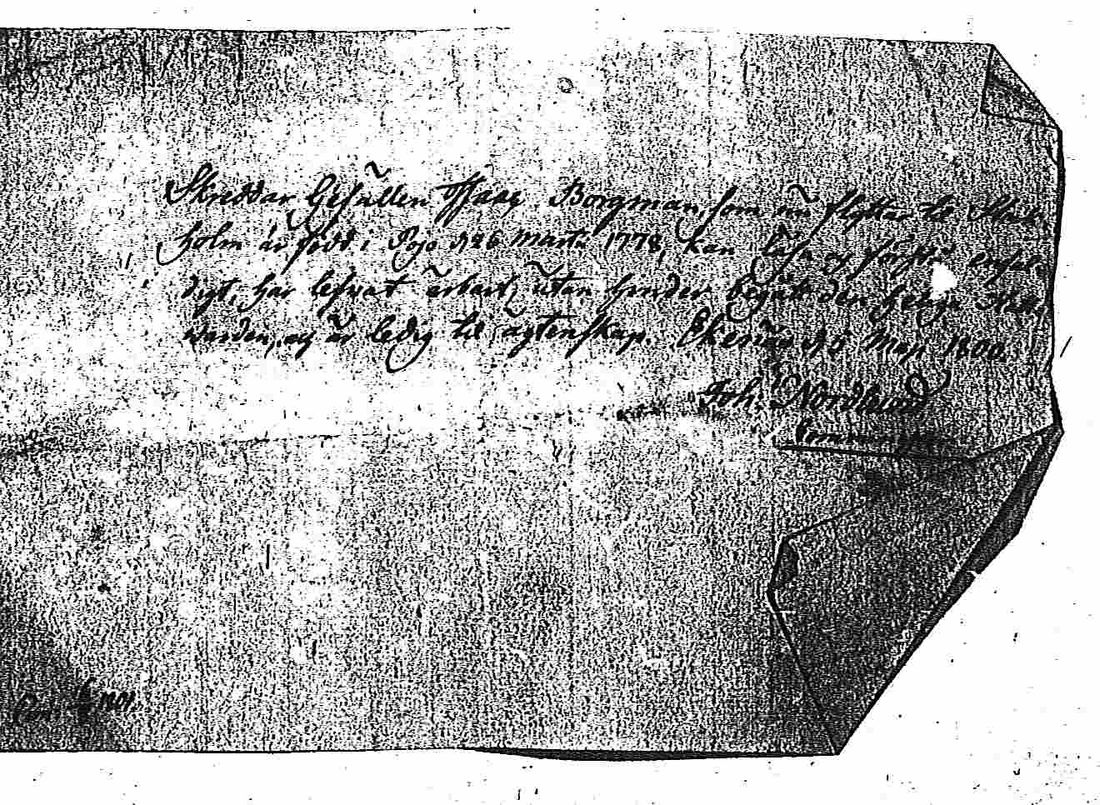 Skreddar Gesällen Isaac Borgman, som nu flyttar til Stock
holm är född i Pojo d 26 Martii 1778, kan läsa och förstår
digt, har lefwat ärbart, utan hinder begått den Helga
warden, och är ledig til ägtenskap. Ekenäs d 5 Maji 1800.
Joh. Nordlund
1801